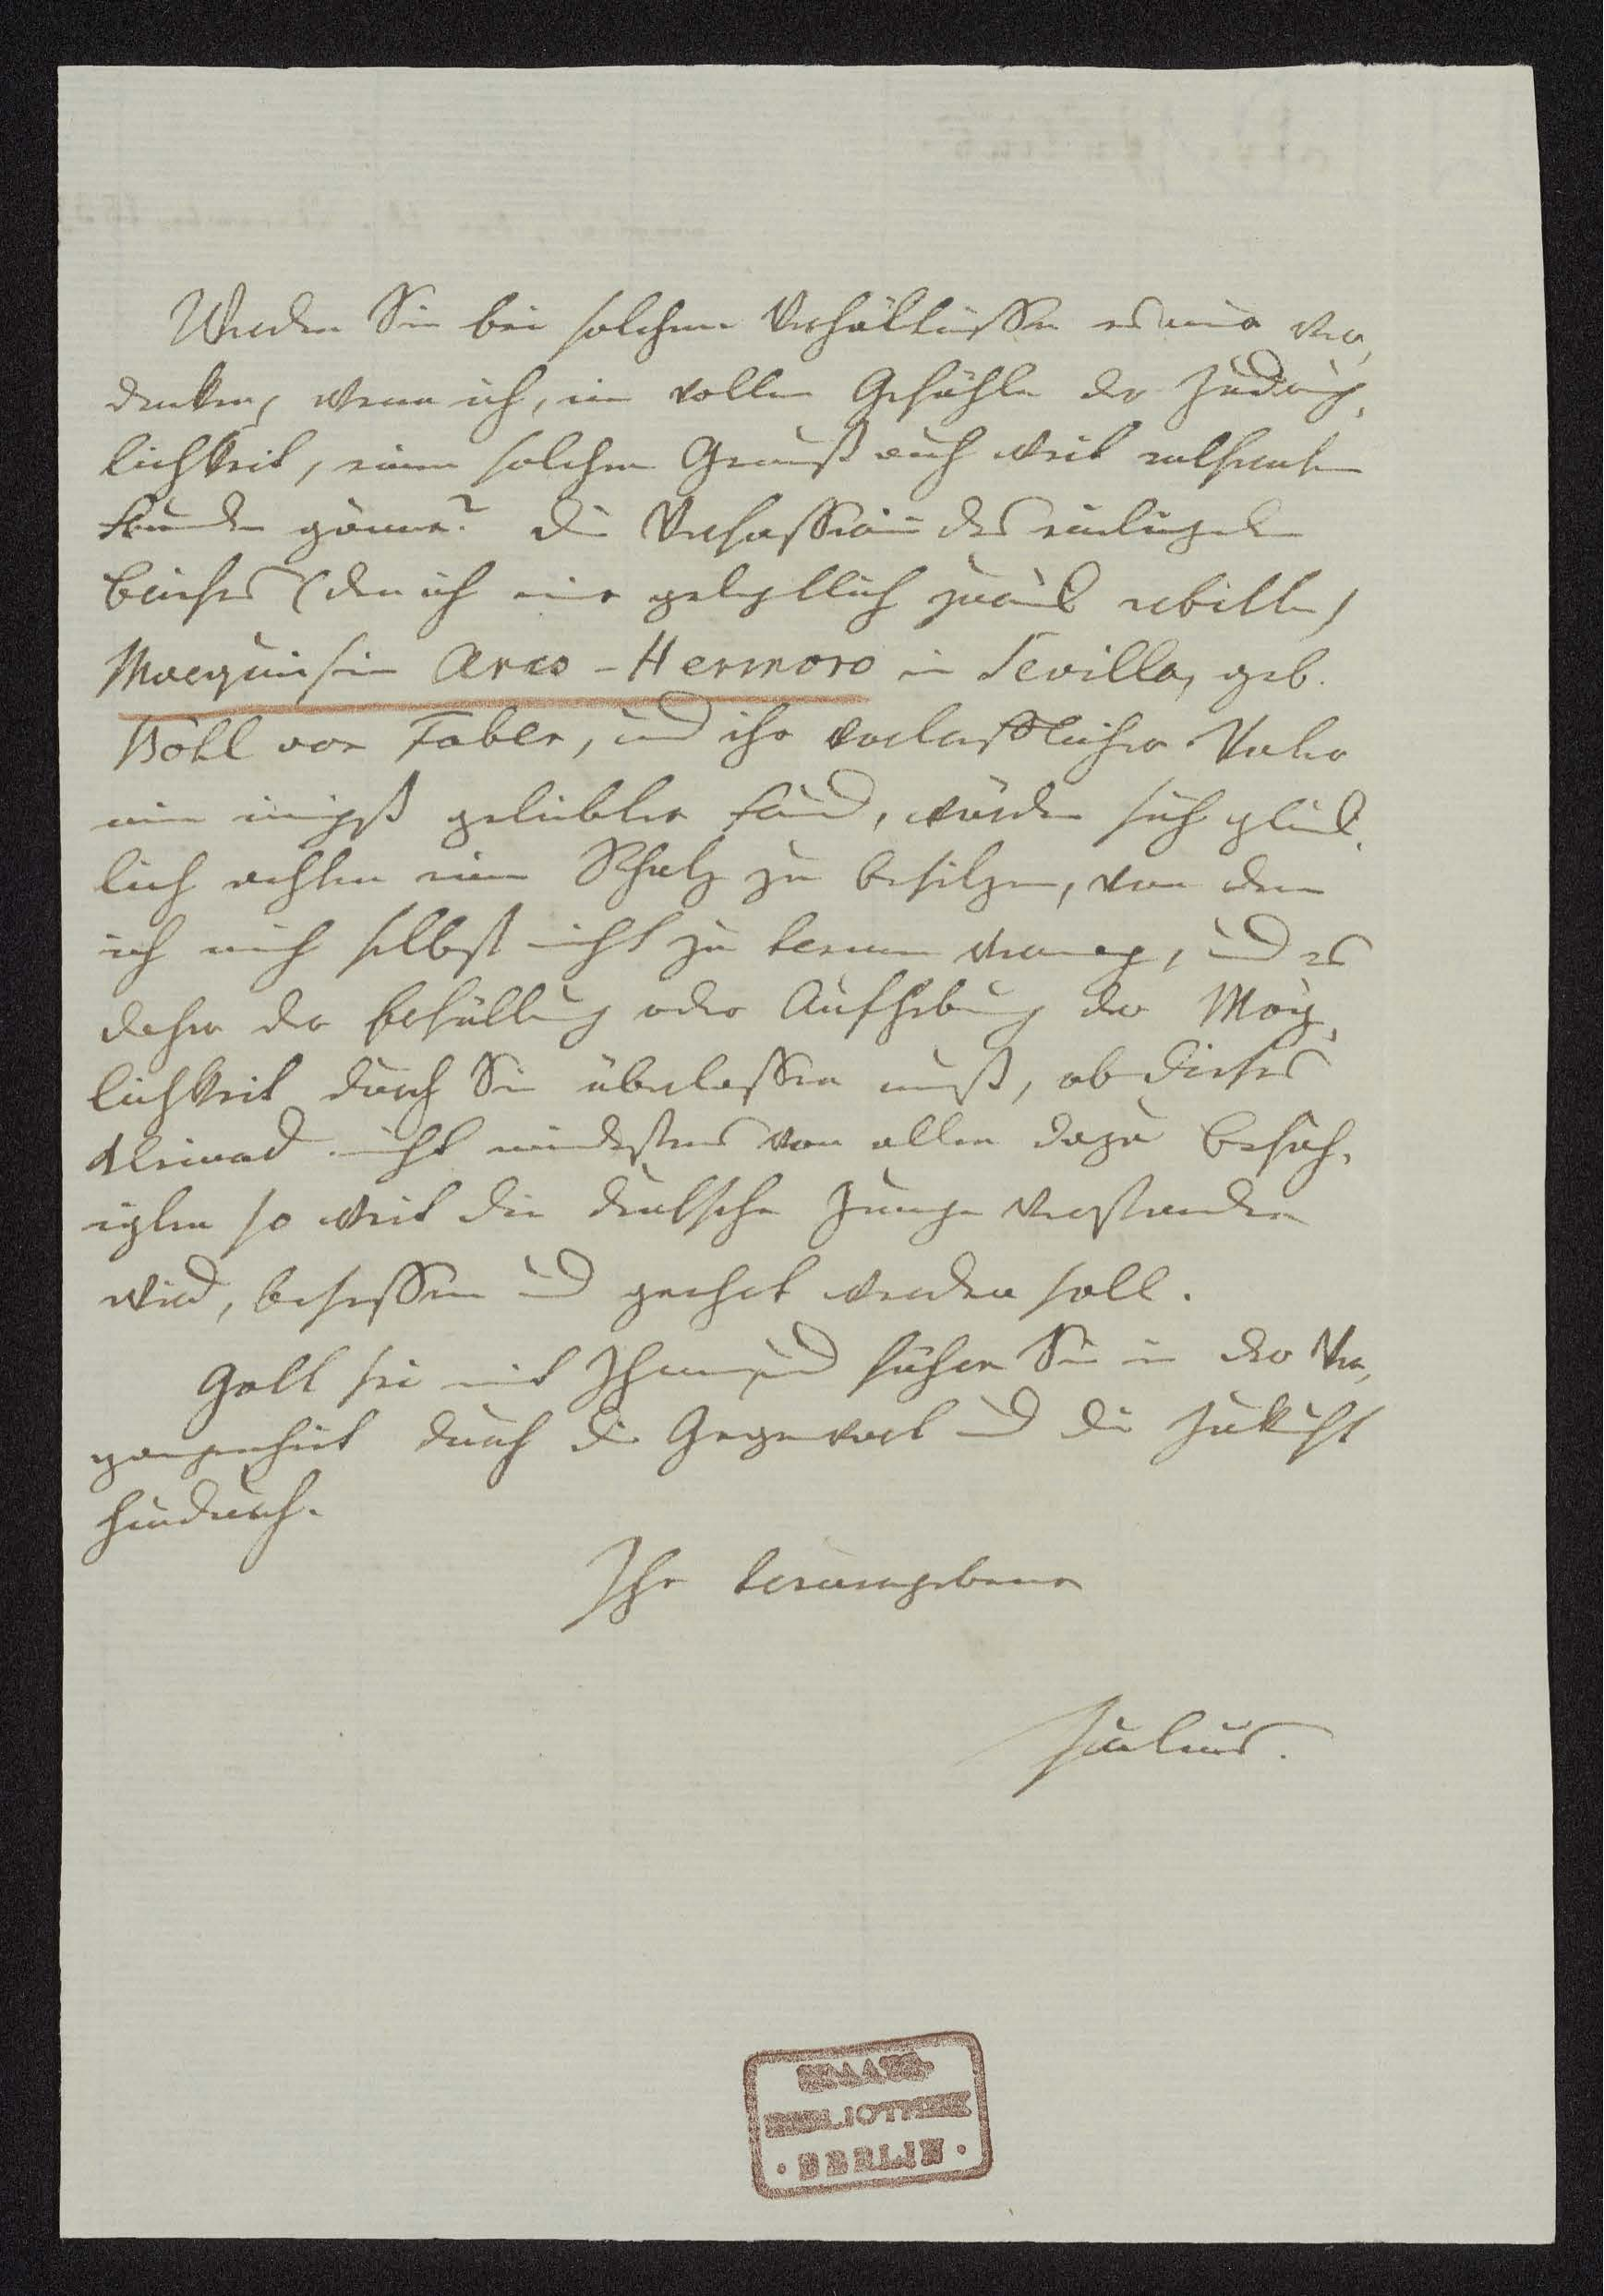 Werden Sie bei solchen Verhältnissen es mir ver-
denken, wenn ich, im vollen Gefühle der Zudring-
lichkeit, einen solchen Genuß auch weit entfernten
Freunden gönne? Die Verfasserin des einliegenden
Briefes (den ich mir gelegentlich zurück erbitte)
Marquisin Arco-Hermoso in Sevilla, geb.
Böhl von Faber, und ihr verlässlicher Vater
mein innigst geliebter Freund, würden sich glück-
lich achten einen Schatz zu besitzen, von dem
ich mich selbst nicht zu trennen vermag, und es
daher der Erfüllung oder Aufhebung der Mög-
lichkeit durch Sie überlassen muß, ob dieses
Kleinod nicht mindestens von allen dazu Befäh-
igten so weit die deutsche Zunge verstanden
wird, besessen und geehrt werden soll.
Gott sei mit Ihnen, und führe Sie in der Ver-
gangenheit durch die Gegenwart und die Zukunft
hindurch.
Ihr treuergebener
Julius.
STAATS-
BIBLIOTHEK
· BERLIN ·